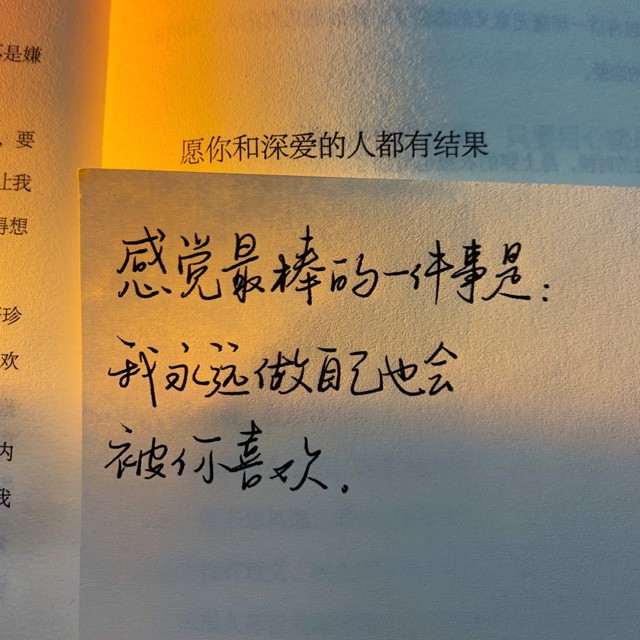 是嫌
，要
让我
得想
珍
欢
内
我
愿你和深爱的人都有结果
感觉最棒的一件事是：
我永远做自己也会
被你喜欢.